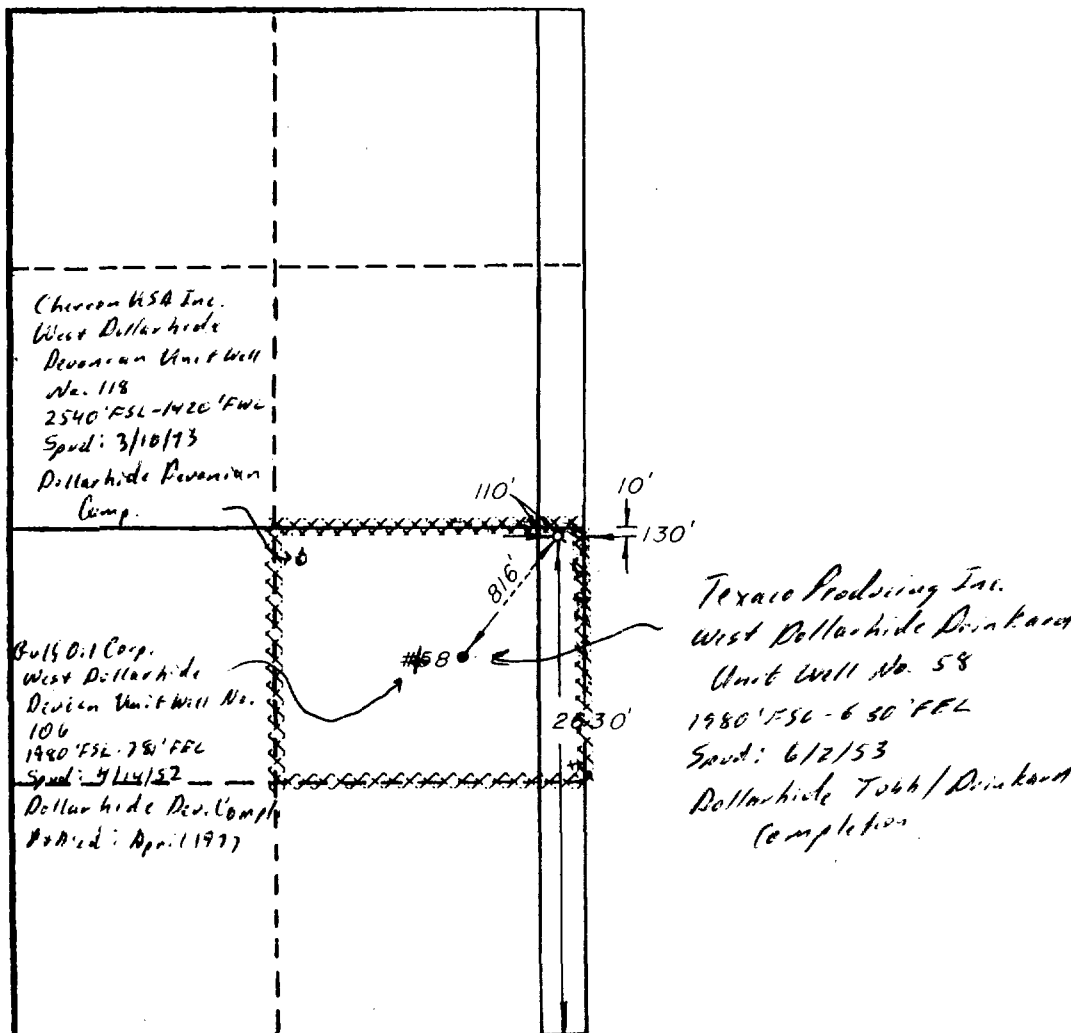 Chevron USA Inc.
West Dollarhide
Devonian Unit Well
No. 118
2540' FSL-1420' FWL
Spud: 3/10/73
Dollarhide Devonian
Comp.
110'
10'
130'
816'
#58
2630'
Gulf Oil Corp.
West Dollarhide
Devonian Unit Well No.
106
1980' FSL-781' FEL
Spud:
Dollarhide Dev. Comple
P&A'ed: April 1977
Texaco Producing Inc.
West Dollarhide Drinkard
Unit Well No. 58
1980' FSL-630' FEL
Spud: 6/2/53
Dollarhide Tubb/Drinkard
Completion